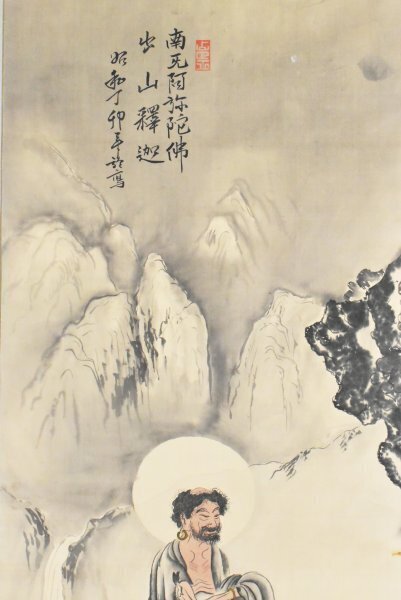 南无阿弥陀佛
出山釋迦
昭和丁卯年謹寫